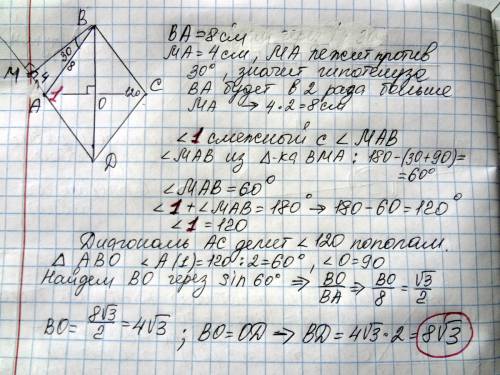 BA = 8 см
MA = 4 см, MA лежит против
30°, значит гипотенуза
BA будет в 2 рада больше
MA → 4·2 = 8 см
∠1 смежный с ∠MAB
∠MAB из Δ-ка BMA: 180-(30+90)=
=60°
∠MAB = 60°
∠1 + ∠MAB = 180° → 180-60 = 120°
∠1 = 120
Диагональ AC делит ∠120 пополам.
Δ ABO ∠A (1) = 120:2 = 60°, ∠O = 90
Найдем BO через sin 60° ⇒ BO/BA ⇒ BO/8 = √3/2
BO = 8√3/2 = 4√3 ; BO = OD → BD = 4√3·2 = 8√3
B
30
8
M
4
A
1
O
120
C
D